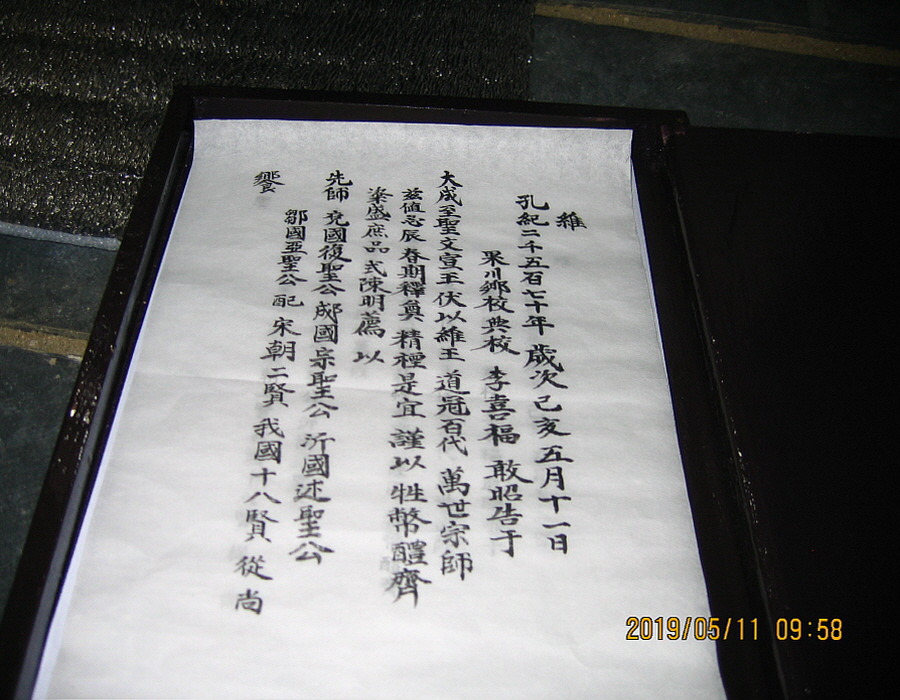 維
孔紀二千五百七十年 歲次 己亥 五月十一日
果川鄉校典校 李喜福 敢昭告于
大成至聖文宣王 伏以維王 道冠百代 萬世宗師
玆値忌辰 春期釋奠 精禋是宜 謹以 牲幣醴齊
粢盛庶品 式陳明薦 以
先師 兗國復聖公 郕國宗聖公 沂國述聖公
鄒國亞聖公 配 宋朝二賢 我國十八賢 從 尚
饗
2019/05/11 09:58